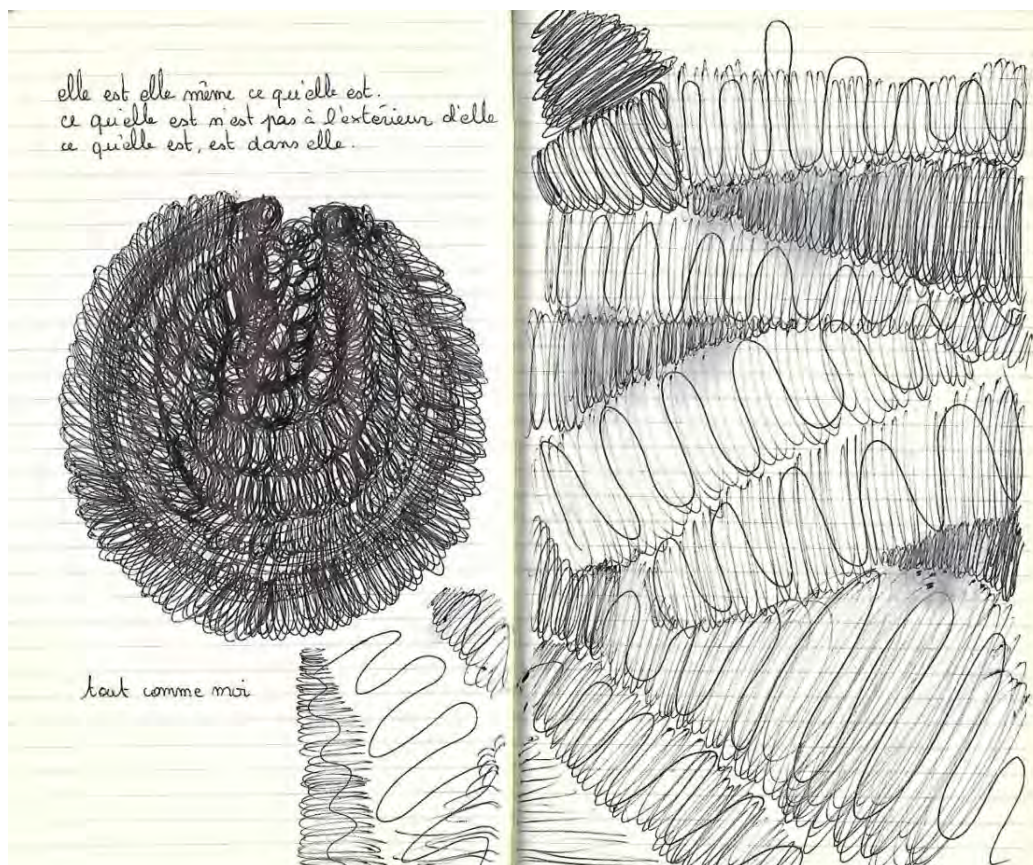 elle est elle même ce qu'elle est.
ce qu'elle est n'est pas à l'extérieur d'elle
ce qu'elle est, est dans elle.
tout comme moi